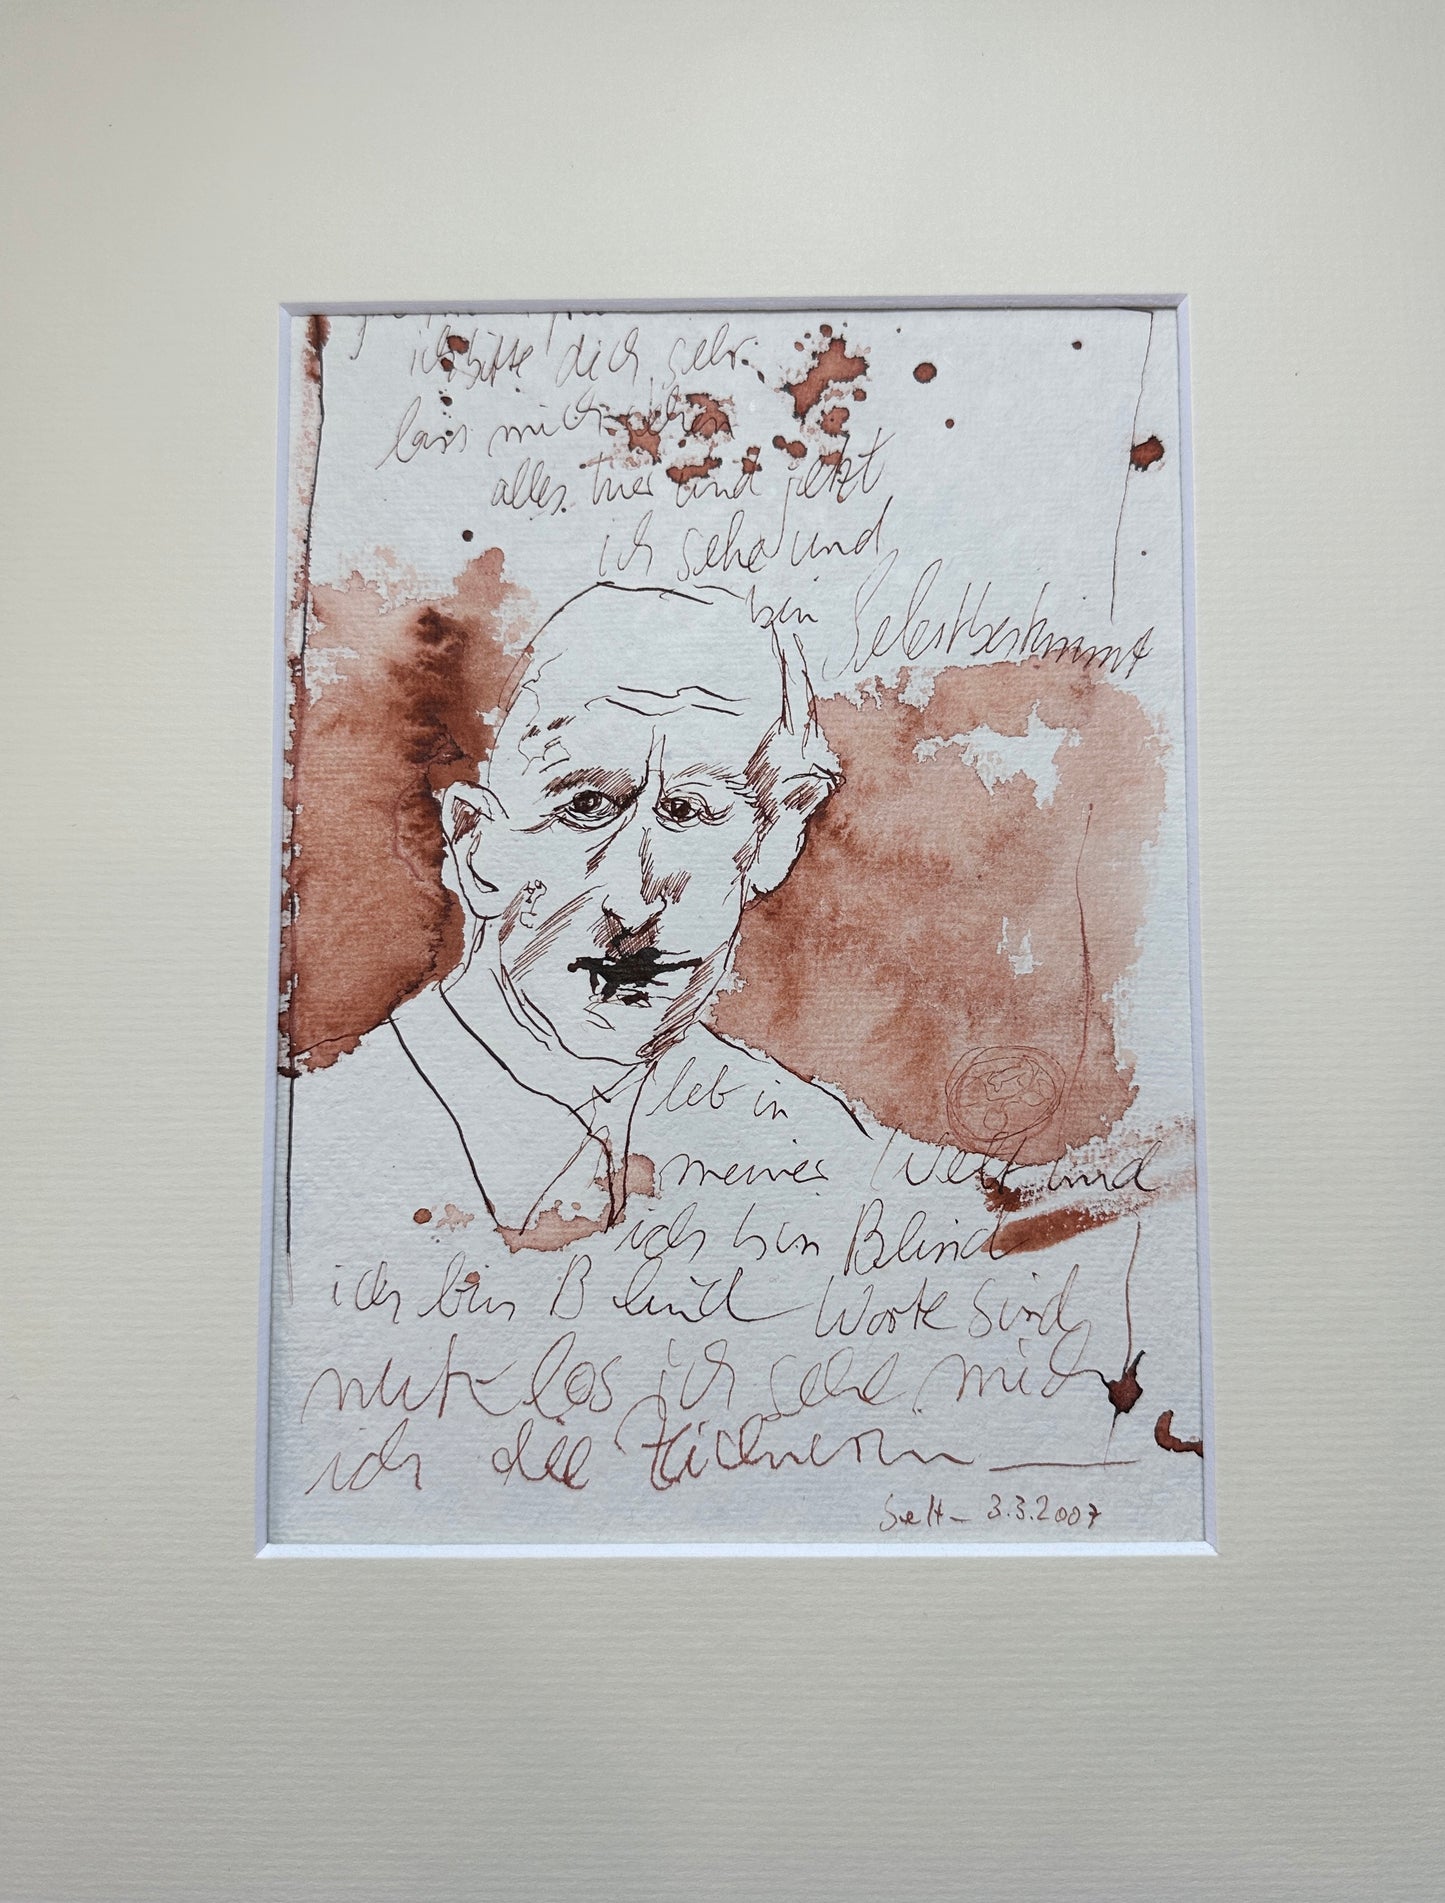 ich bitte dich sehr
lass mich sehen
alles hier und jetzt
ich sehe und
bin Selbstbestimmt
leb in
meiner Welt und
ich bin Blind
ich bin Blind Worte sind
nutzlos ich sehe mich
ich die Zeichnerin
3.3.2007